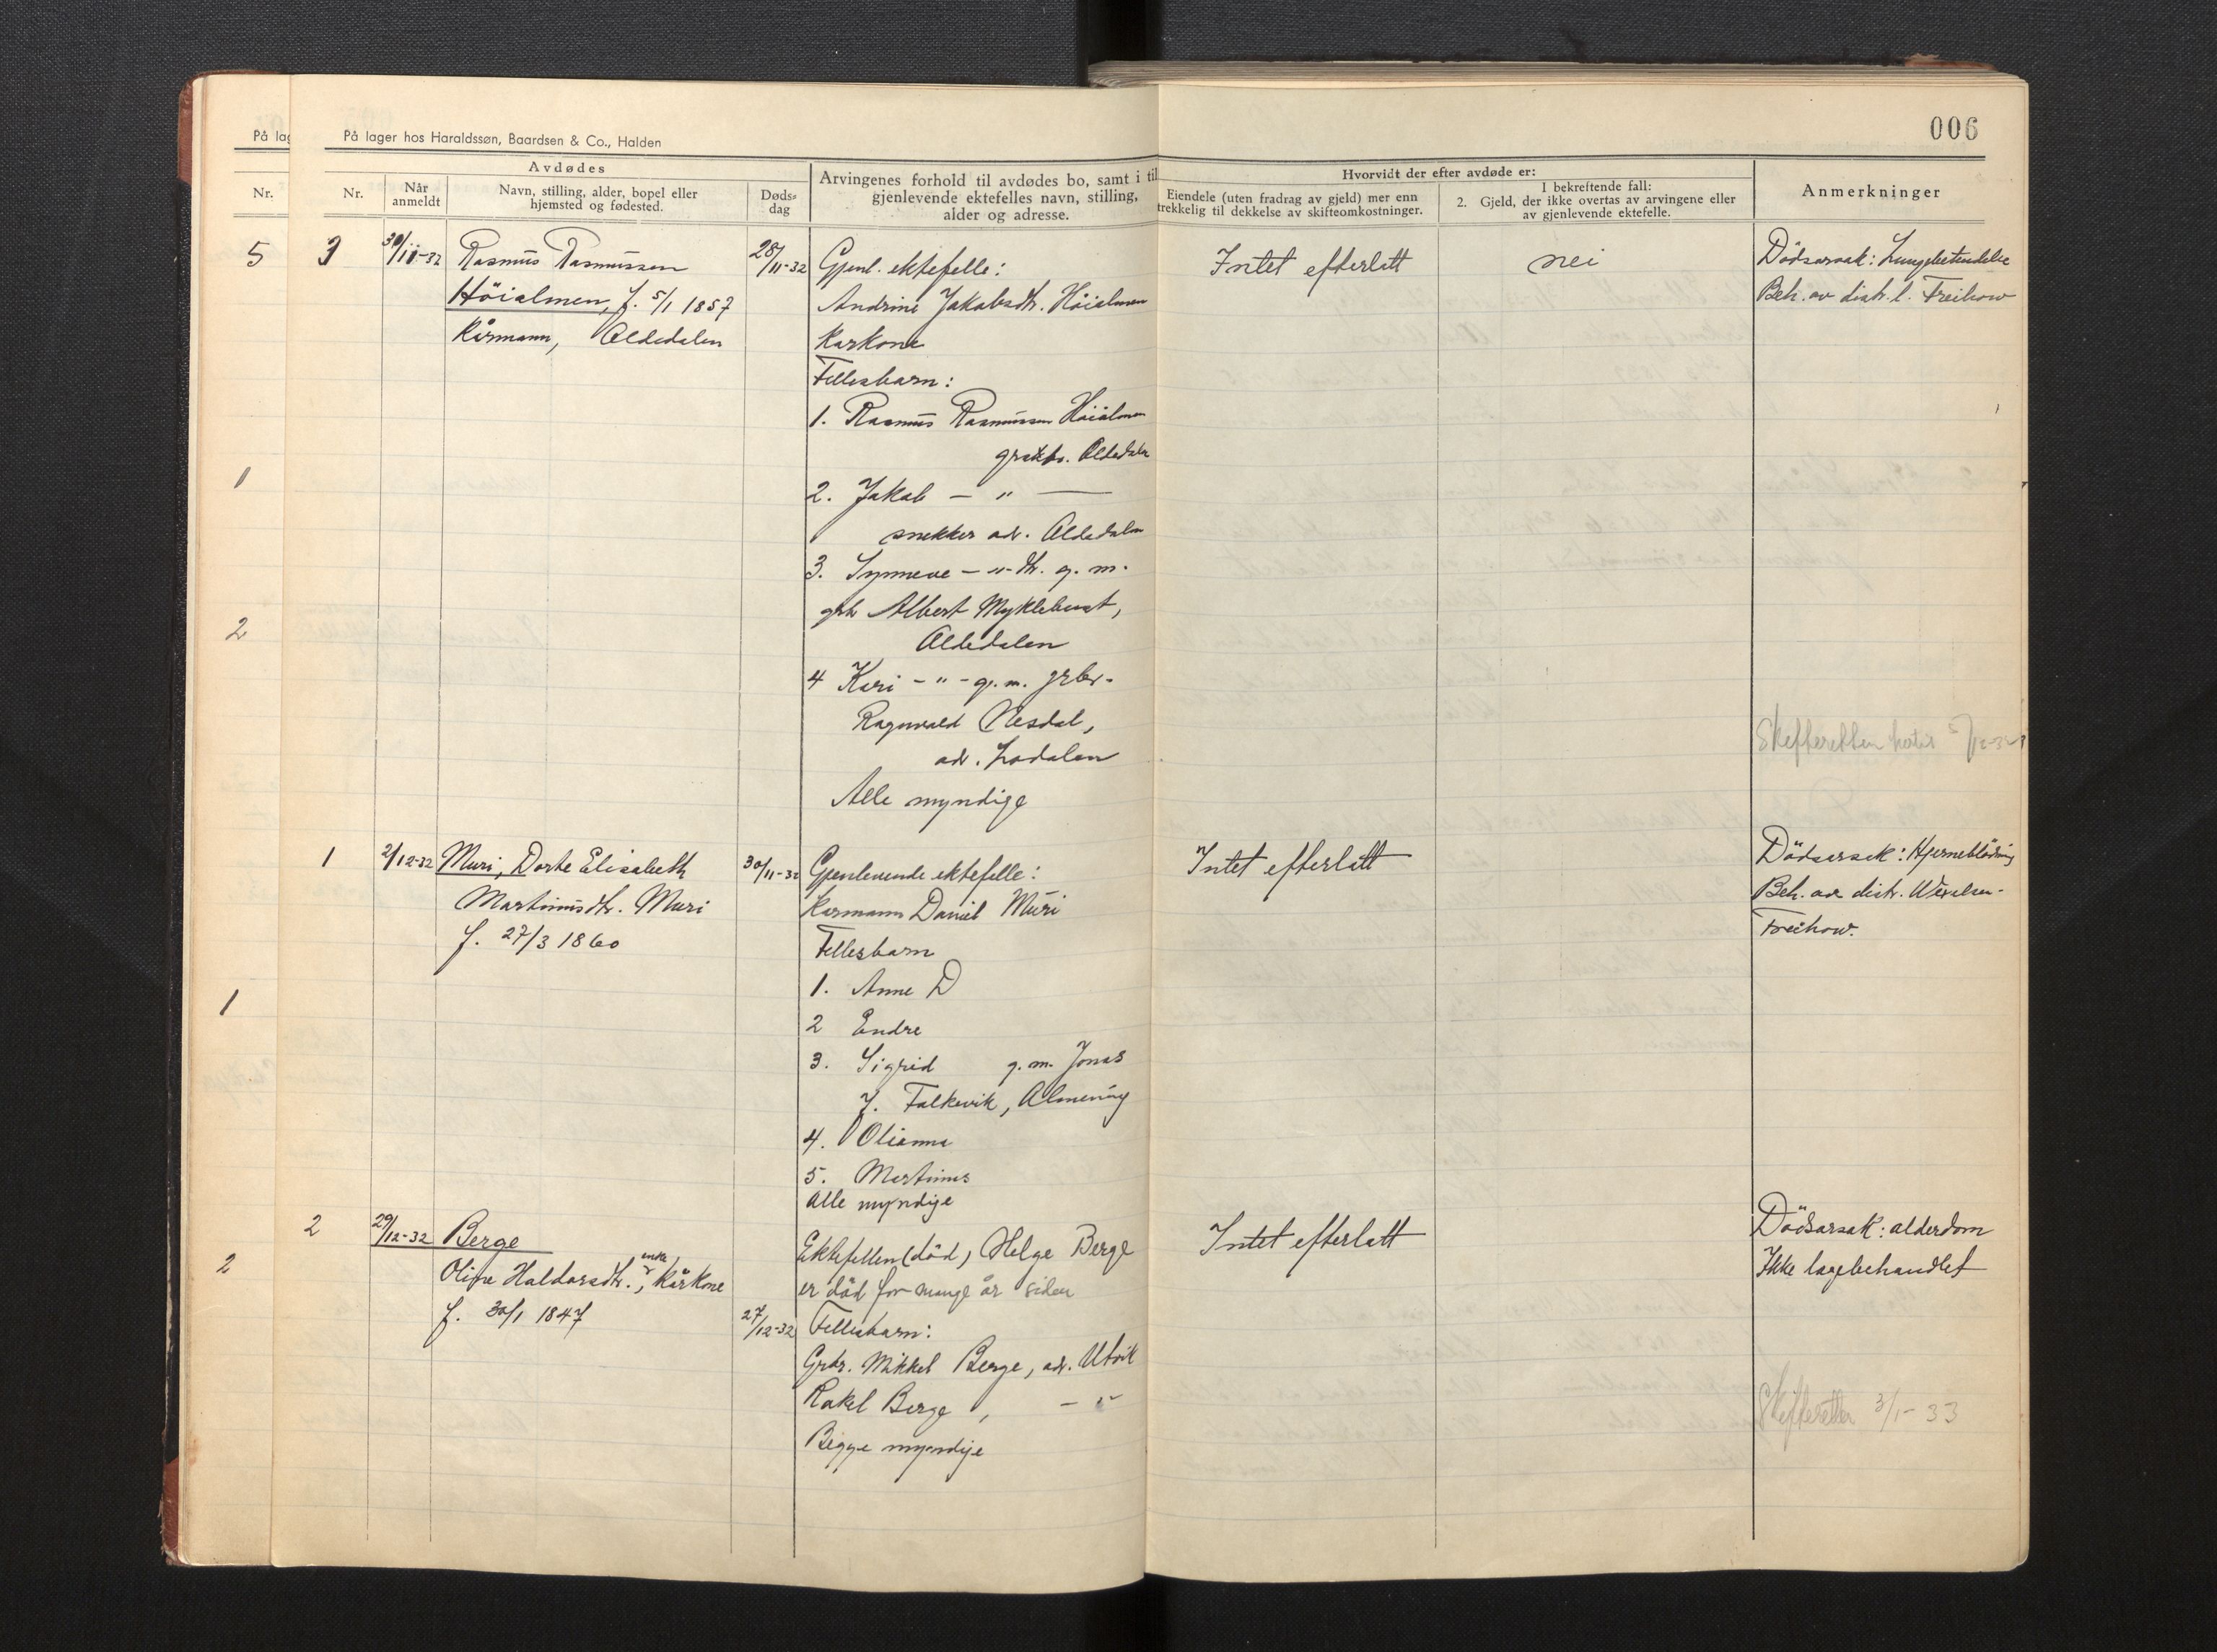 006
På lag
På lager hos Haraldssøn, Baardsen & Co., Halden
Nr.
Nr.
Avdødes
Når anmeldt
Navn, stilling, alder, bopel eller
hjemsted og fødested.
Døds-
dag
Arvingenes forhold til avdødes bo, samt i til
gjenlevende ektefelles navn, stilling,
alder og adresse.
Hvorvidt der efter avdøde er:
Eiendele (uten fradrag av gjeld) mer enn
trekkelig til dekkelse av skifteomkostninger.
I bekreftende fall:
2. Gjeld, der ikke overtas av arvingene eller
av gjenlevende ektefelle.
Anmerkninger
5
1
2
1
2
3
30/11-32
Rasmus Rasmussen
Höialmen, f. 5/1 1857
Kårmann, Oldedalen
28/11-32
Gjenl. ektefelle:
Andrine Jakobsdtr. Höialmen
Karkone
Fellesbarn:
1. Rasmus Rasmussen Höialmen
Oldedalen
2. Jakob — " —
snekker ad. Oldedalen
3. Synneve — " - dtr. g. m.
Albert Myklebust,
Oldedalen
4 Kari - " - g. m. grbr.
Ragnvald Nesdal,
ad. Lodalen
Alle myndige
Intet efterlatt
nei
Dödsarsak: Lungebetendelse
Beh. av distr. l. Freihow
Skifteretten 5/12-32
1
2/12-32
Muri, Dorte Elisabeth
Martinusdtr. Muri
f. 27/3 1860
30/11-32
Gjenlevende ektefelle:
Karmann Daniel Muri
Fellesbarn
1. Anne D
2 Endre
3. Sigrid g. m. Jonas
J. Falkevik, Almening
4. Olianna
5. Martinus
Alle myndige
Intet efterlatt
Dödsarsak: Hjerneblödning
Beh. av distr.
Freihow.
2
29/12-32
Berge
Oline Haldorsdtr., enke, Kårkone
f. 30/1 1847
27/12-32
Ektefellen (död) Helge Berge
er död for mange år siden
Fellesbarn:
Grbr. Mikkel Berge, ad. Utvik
Rakel Berge, — " —
Begge myndige
Intet efterlatt
Dödsarsak: alderdom
Ikke lægebehandlet
Skifteretten 3/1-33